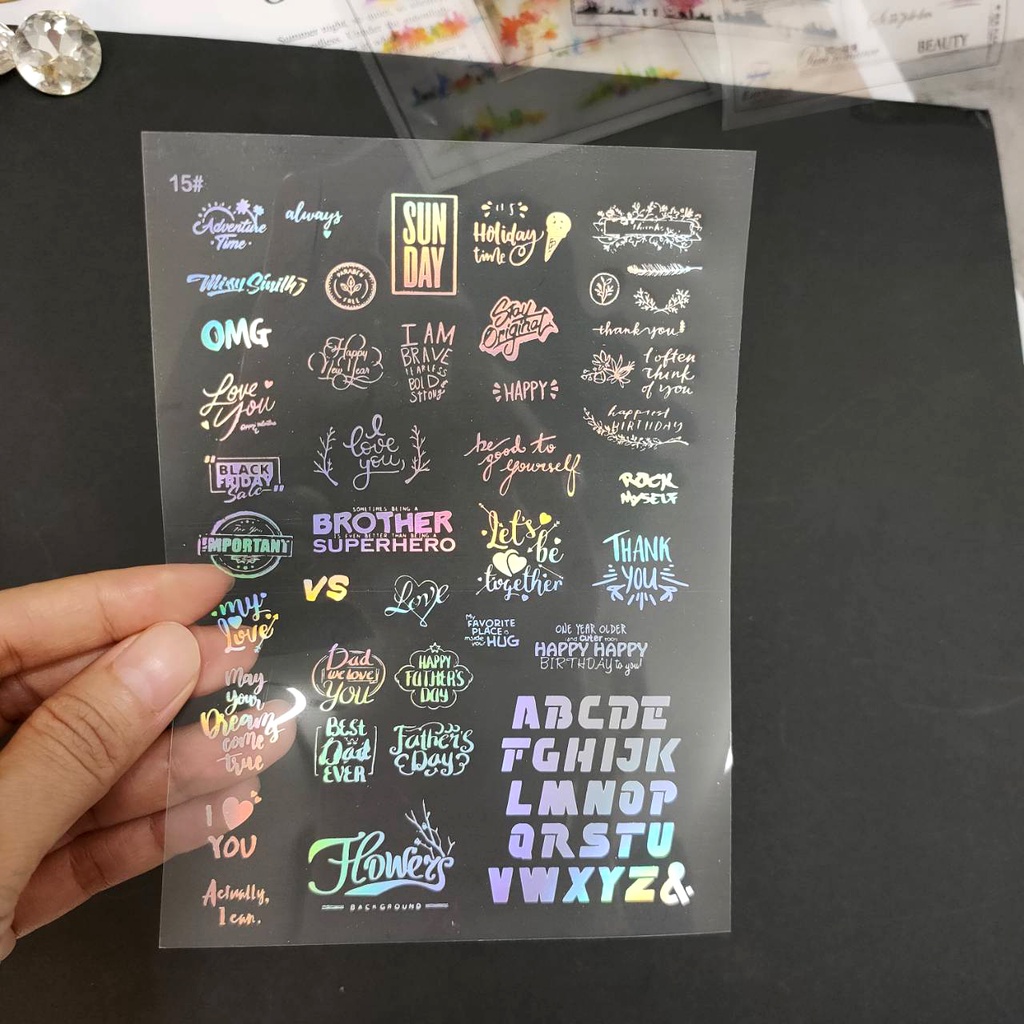 Summer night
BEAUTY
15#
Adventure
Time
always
SUN
DAY
IT'S
Holiday
time
Thank
PARABEN
FREE
OMG
Stay
Original
thank you!
Happy
New Year
I AM
BRAVE
FEARLESS
BOLD &
STRONG
HAPPY
I often
think
of you
Love
You
happiest
BIRTHDAY
I
love
you,
be
good to
yourself
"BLACK
FRIDAY
Sale"
ROCK
MYSELF
For You
IMPORTANT
SOMETIMES BEING A
BROTHER
IS EVEN BETTER THAN BEING A
SUPERHERO
Let's
be
together
THANK
YOU
VS
Love
my
Love
My
FAVORITE
PLACE is
inside
YOUR HUG
ONE YEAR OLDER
and cuter too
HAPPY HAPPY
BIRTHDAY to you!
Dad
we love
YOU
HAPPY
FATHER'S
DAY
May
your
Dreams
come
true
BEST
Dad
EVER
Father's
Day
I
YOU
Flowers
BACKGROUND
Actually,
I can.
ABCDE
FGHIJK
LMNOP
QRSTU
VWXYZ&